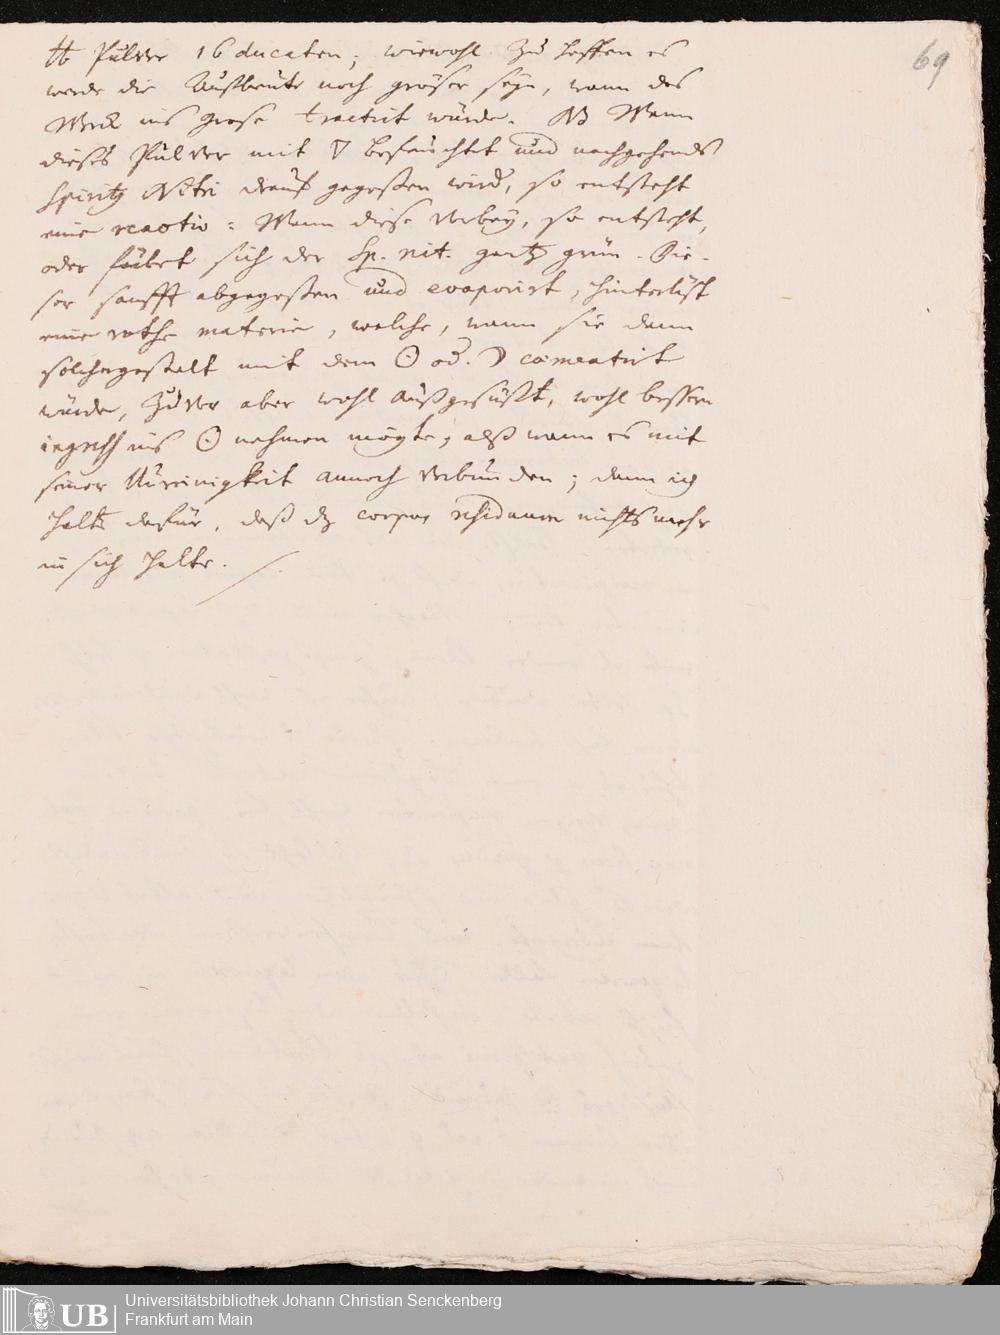 69
℔ Pulver 16 ducaten; wiewohl zu hoffen es
werde die Außbeute noch gröser seyn, wann das
Werck ins grose tractirt würde. NB Wann
dieses Pulver mit ▽ befeuchtet und nachgehends
Spiritus Nitri drauf gegoßen wird, so entsteht
eine reactio: Wann diese vorbey, so entsteht,
oder färbet sich der Sp. nit. gantz grün. Die-
ser sanfft abgegoßen und evaporirt, hinterläst
eine rothe materie, welche, wann sie dann
solchergestalt mit dem ☉ od. ☽ cæmentirt
würde, zuvor aber wohl außgesüßt, wohl bessern
ingress ins ☉ nehmen mögte, alß wann es mit
seiner Unreinigkeit annoch verbunden; dann ich
halte dafür, daß dz corpus residuum nichts mehr
in sich halte.
UB
Universitätsbibliothek Johann Christian Senckenberg
Frankfurt am Main